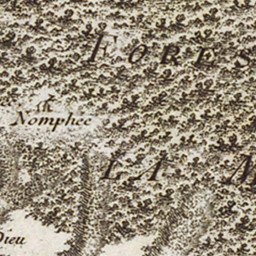 FORES
Nomphée
LA M
Dieu